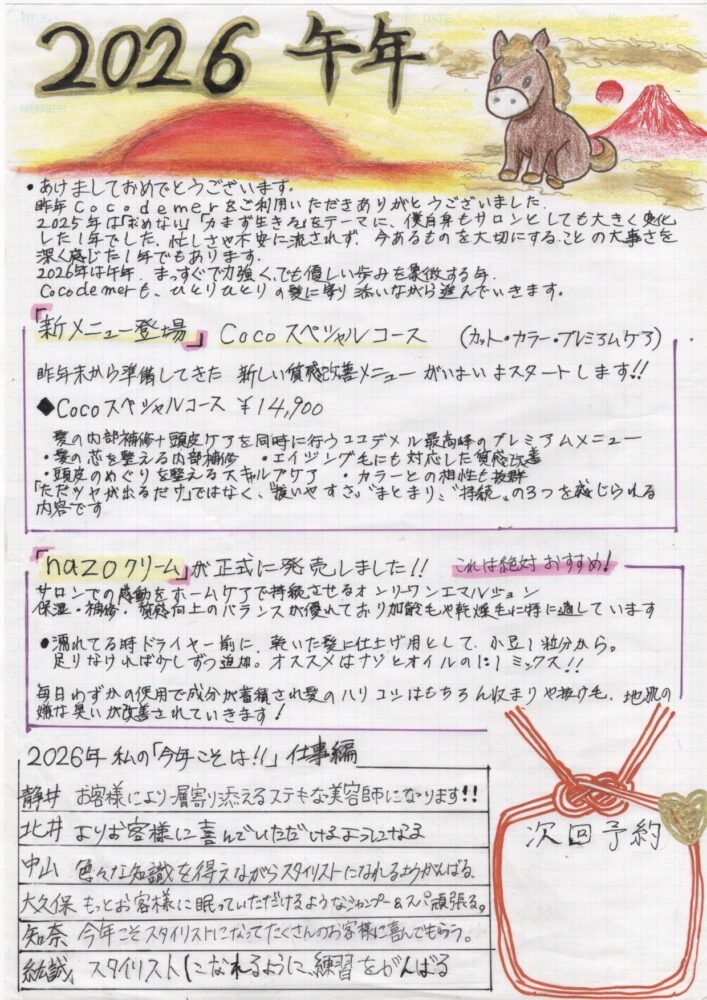 TITLE
DATE
No
MEMBER
2026 午年
・あけましておめでとうございます.
昨年Cocodemerをご利用いただきありがとうございました.
2025年は「求めない」「力まず生きる」をテーマに、僕自身もサロンとしても大きく変化
した1年でした。忙しさや不安に流されず、今あるものを大切にすることの大事さを
深く感じた1年でもあります.
2026年は午年、まっすぐで力強く、でも優しい歩みを象徴する年.
Cocodemerも、ひとりひとりの髪に寄り添いながら進んでいきます.
「新メニュー登場」 Cocoスペシャルコース (カット・カラー・プレミアムケア)
昨年末から準備してきた 新しい質感改善メニューがいよいよスタートします!!
◆Cocoスペシャルコース ¥14,900
髪の内部補修+頭皮ケアを同時に行うココデメル最高峰のプレミアムメニュー
・髪の芯を整える内部補修 ・エイジング毛にも対応した質感改善
・頭皮のめぐりを整えるスキャルプケア ・カラーとの相性も抜群
「ただツヤが出るだけ」ではなく、"扱いやすさ""まとまり""持続"の3つを感じられる
内容です
「nazoクリーム」が正式に発売しました!! これは絶対おすすめ!
サロンでの感動をホームケアで持続させるオンリーワンエマルジョン
保湿・補修・質感向上のバランスが優れており加齢毛や乾燥毛に特に適しています
●濡れてる時ドライヤー前に、乾いた髪に仕上げ用として、小豆1粒分から。
足りなければ少しずつ追加。オススメはナゾとオイルの1:1ミックス!!
毎日わずかの使用で成分が蓄積され髪のハリコシはもちろん収まりや抜け毛、地肌の
嫌な臭いが改善されていきます!
2026年 私の「今年こそは!!」仕事編
静井 お客様により一層寄り添えるステキな美容師になります!!
北井 よりお客様に喜んでいただけるようになる
中山 色々な知識を得ながらスタイリストになれるようがんばる.
大久保 もっとお客様に眠っていただけるようなシャンプー&スパ頑張る。
知奈 今年こそスタイリストになってたくさんのお客様に喜んでもらう。
スタイリストになれるように、練習をがんばる
次回予約